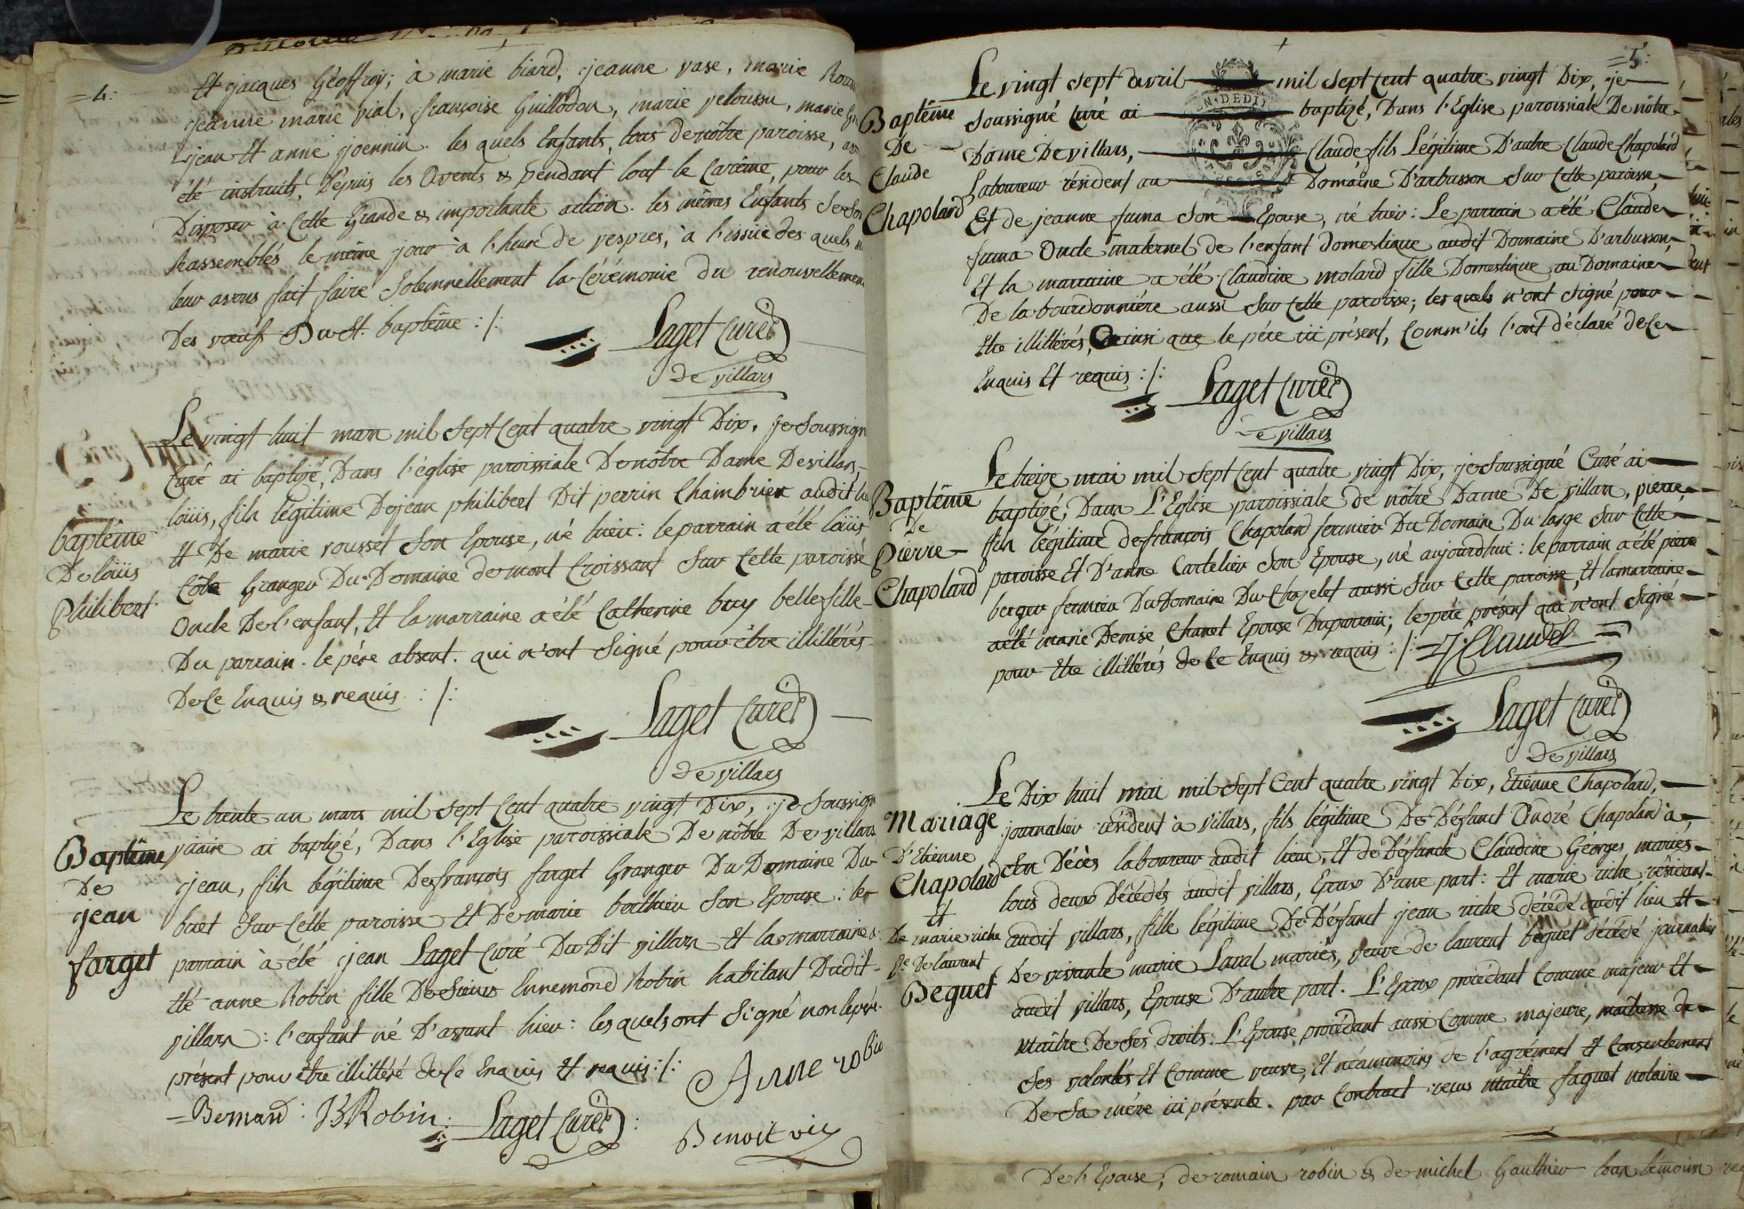 =4:
Et jacques Geoffroy; à marie biard, jeanne vase, marie
jeanne marie vial, françoise Guillodon, marie peloussu, marie
jean Et anne joennin. les quels Enfants, tous de nôtre paroisse,
été instruits, Depuis les Avents & pendant tout le Carême, pour les
Disposer à Cette Grande & importante action. les mêmes Enfants Se Sont
Rassemblés le même jour à l'heure de vespres, à l'issüe des quels
leur avons fait faire Solemnellement la Cérémonie du renouvellement
Des vœuf Du St. baptême :/:
Laget Curé
de villars
baptême
De loüis
Philibert
Le vingt huit mars mil Sept Cent quatre vingt Dix, je Soussigné
Curé ai baptizé, Dans l'église paroissiale De nôtre Dame De villars,
loüis, fils légitime De jean philibert Dit perrin Chambrier audit lieu
Et De marie rousset Son Epouse, né hier: le parrain a été loüis
Côte Granger Du Domaine de mont Croissant Sur Cette paroisse
Oncle De l'enfant, Et la marraine a été Catherine buy belle fille
Du parrain. le père absent. qui n'ont Signé pour être illittérés
De Ce Enquis & requis :/:
Laget Curé
de villars
Baptême
De
jean
farget
Le trente un mars mil Sept Cent quatre vingt Dix, je Soussigné
vicaire ai baptizé, Dans l'Eglise paroissiale De nôtre De villars
jean, fils légitime De françois farget Granger Du Domaine Du
buet Sur Cette paroisse Et De marie berthier Son Epouse: le
parrain à été jean Laget Curé Du Dit villars Et la marraine a
été anne Robin fille De Sieur Ennemond Robin habitant Dudit
villars: l'enfant né D'avant hier: les quels ont Signé non le père
présent pour être illittéré de Ce Enquis Et requis:/:
Anne robin
=Bernard: JBRobin: Laget Curé:
Benoit vic
=5:
Baptême
De
Claude
Chapolard
Le vingt Sept Avril mil Sept Cent quatre vingt Dix, je
Soussigné Curé ai baptizé, Dans l'Eglise paroissiale De nôtre
Dame De villars, Claude fils Légitime D'autre Claude Chapolard
Laboureur résident au Domaine D'arbusson Sur Cette paroisse,
Et de jeanne fuma Son Epouse, né hier: Le parrain a été Claude
fuma Oncle maternel de l'enfant domestique audit Domaine D'arbusson,
Et la marraine a été Claudine molard fille Domestique au Domaine
De la bourdonnière aussi Sur Cette paroisse; les quels n'ont Signé pour
Etre illittérés, ainsi que le père ici présent, Comm'ils l'ont déclaré de Ce
Enquis Et requis :/:
Laget Curé
de villars
Baptême
De
Pierre
Chapolard
Le treize mai mil Sept Cent quatre vingt Dix, je Soussigné Curé ai
baptizé, Dans L'Eglise paroissiale de nôtre Dame De villars, pierre,
fils légitime de françois Chapolard fermier Du Domaine Du large Sur Cette
paroisse Et D'anne Cartelier Son Epouse, né aujourdhui: le parrain a été pierre
berger fermier Du Domaine Du Chazelet aussi Sur Cette paroisse, Et la marraine
a été marie Denise Chanet Epouse Du parrain; le père présent qui n'ont Signé
pour Etre illittérés de Ce Enquis & requis :/: J. Claudel
Laget Curé
de villars
Mariage
D'Etienne
Chapolard
Et
De marie riche
ve. De laurent
Bequet
Le Dix huit mai mil Sept Cent quatre vingt Dix, Etienne Chapolard,
journalier résident à villars, fils légitime De Défunct André Chapolard à
Son Décès laboureur audit lieu, Et de Défuncte Claudine Géorges mariés
tous deux Décédés audit villars, Epoux D'une part: Et marie riche résidant
audit villars, fille légitime De Défunct jean riche décédé audit lieu Et
De vivante marie Laral mariés, veuve de laurent bequet décédé journalier
audit villars, Epouse D'autre part. L'Epoux procédant Comme majeur Et
Maître De Ses droits. L'Epouse procédant aussi Comme majeure, maitresse de
Ses volontés Et Comme veuve, Et néanmoins de l'agrément Et Consentement
De Sa mère ici présente. par Contract reçus Maître faguet notaire
De l'Epouse, de romain robin & de michel Gaulthier tous temoins